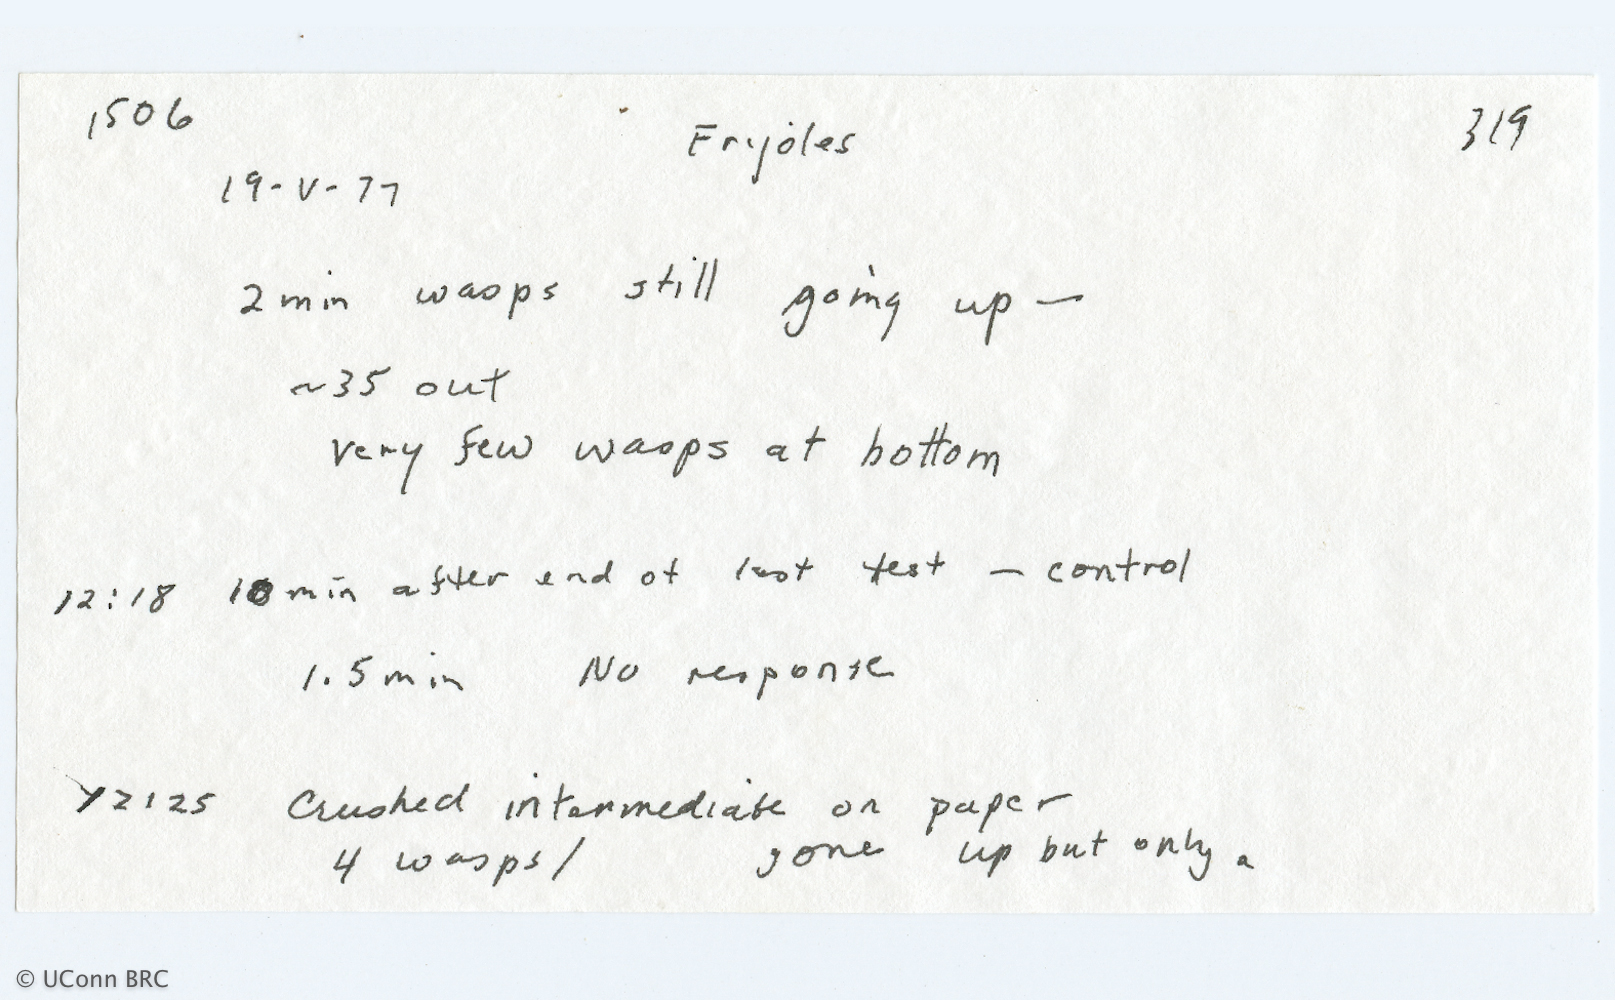 1506 Frijoles 319
19-V-77
2 min wasps still going up —
~35 out
very few wasps at bottom
12:18 10 min after end of last test — control
1.5 min No response
12:25 Crushed intermediate on paper
4 wasps/ gone up but only a
© UConn BRC